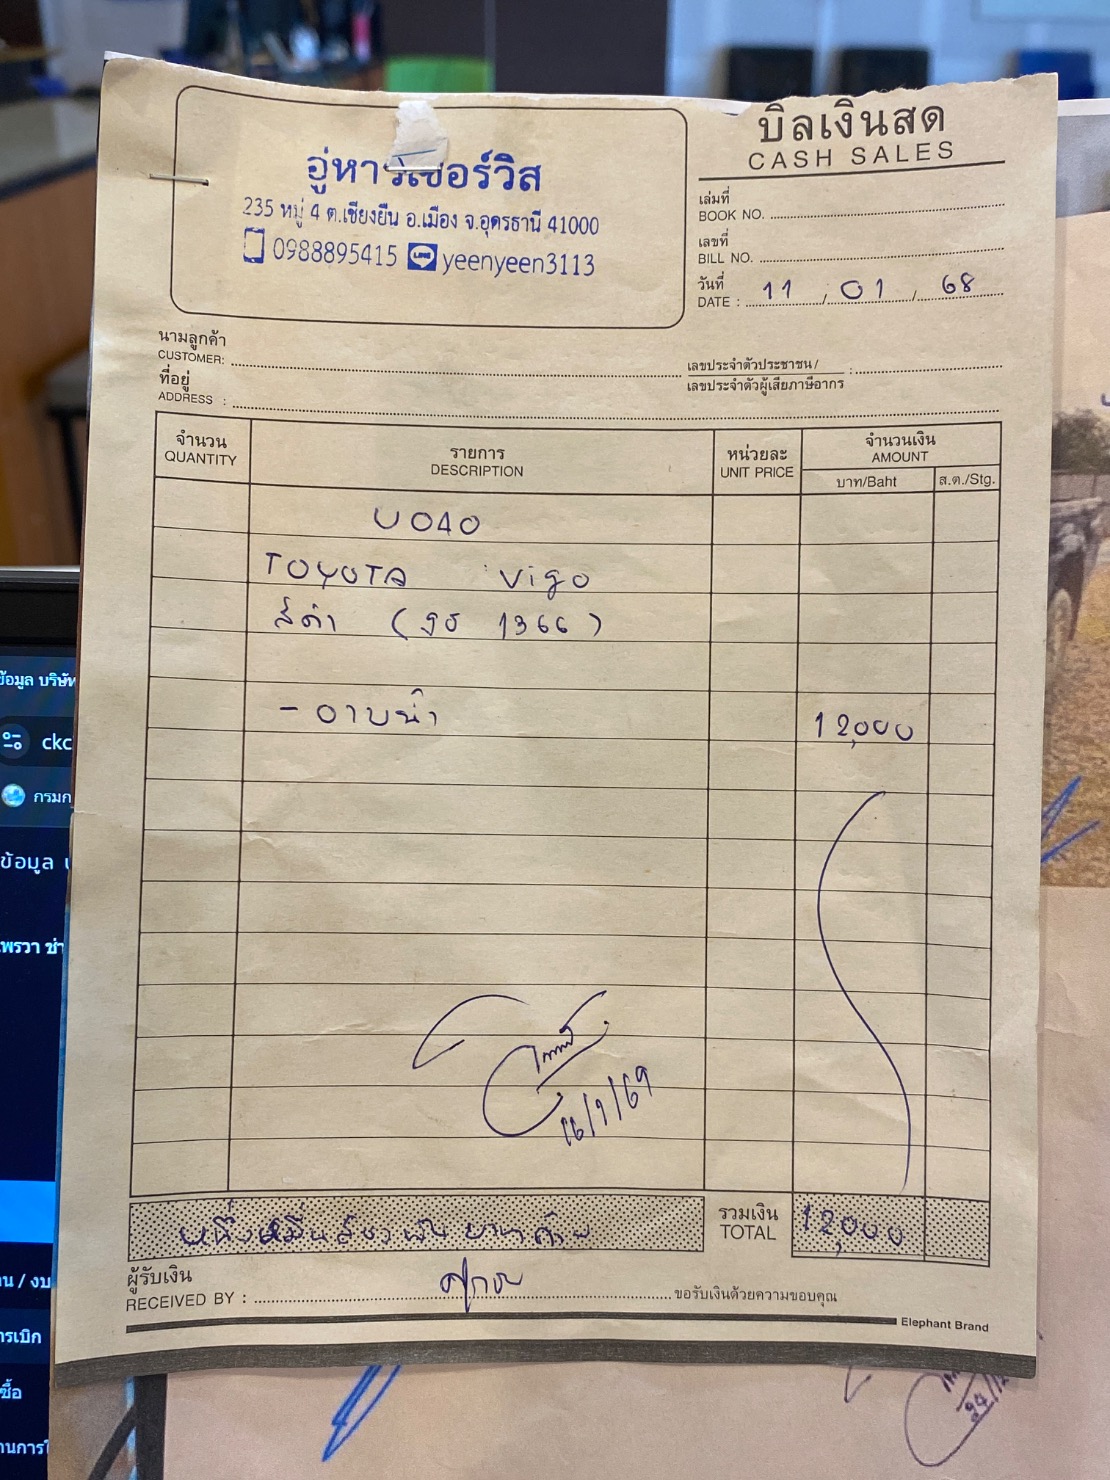 บิลเงินสด
CASH SALES
235 หมู่ 4 ต.เชียงยืน อ.เมือง จ.อุดรธานี 41000
0988895415 LINE yeenyeen3113
เล่มที่
BOOK NO.
เลขที่
BILL NO.
วันที่
DATE : 11 / 01 / 68
นามลูกค้า
CUSTOMER:
เลขประจำตัวประชาชน/
เลขประจำตัวผู้เสียภาษีอากร :
ที่อยู่
ADDRESS :
จำนวน รายการ หน่วยละ จำนวนเงิน
QUANTITY DESCRIPTION UNIT PRICE AMOUNT
บาท/Baht ส.ต./Stg.
U040
TOYOTA Vigo
สีดำ ( 1366 )
- อาบน้ำ 12,000
16/1/69
หนึ่งหมื่นสองพันบาทถ้วน
รวมเงิน
TOTAL 12,000
ผู้รับเงิน
RECEIVED BY : ขอรับเงินด้วยความขอบคุณ
Elephant Brand
ckc
กรมก
ข้อมูล
ข้อมูล บริษัท
พรวา ช่า
น / งบ
ารเบิก
ซื้อ